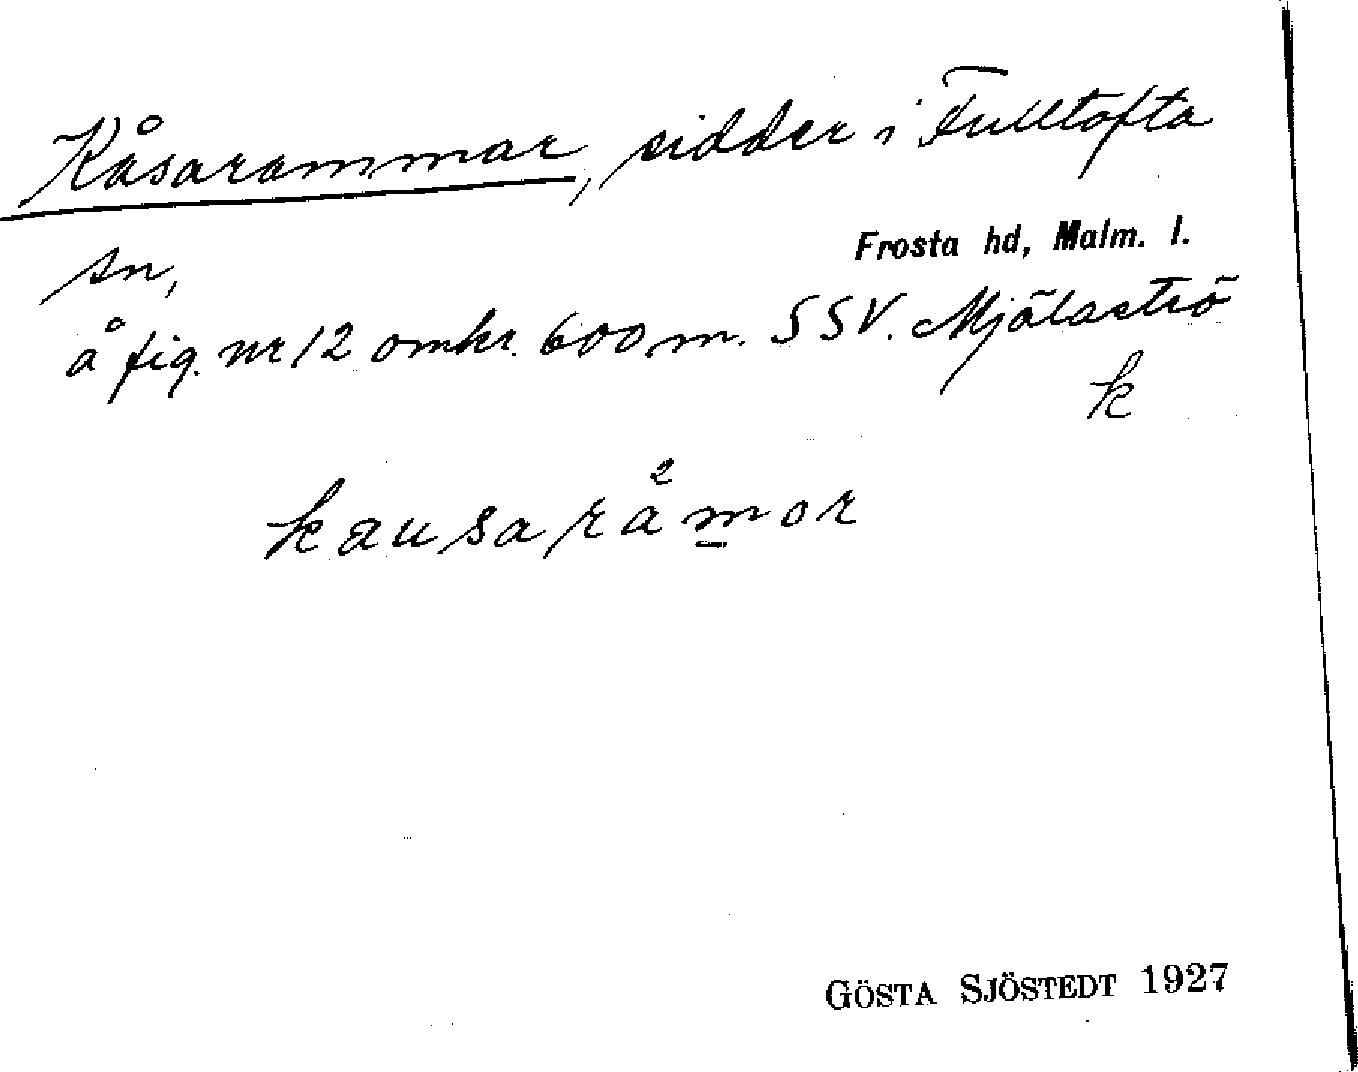 Kåsarammar, sidder i Fulltofta
sn,
Frosta hd, Malm. l.
å fig. nr 12 omkr. 600 m. SSV. Mjölaströ
k
kausaråmor
GÖSTA SJÖSTEDT 1927